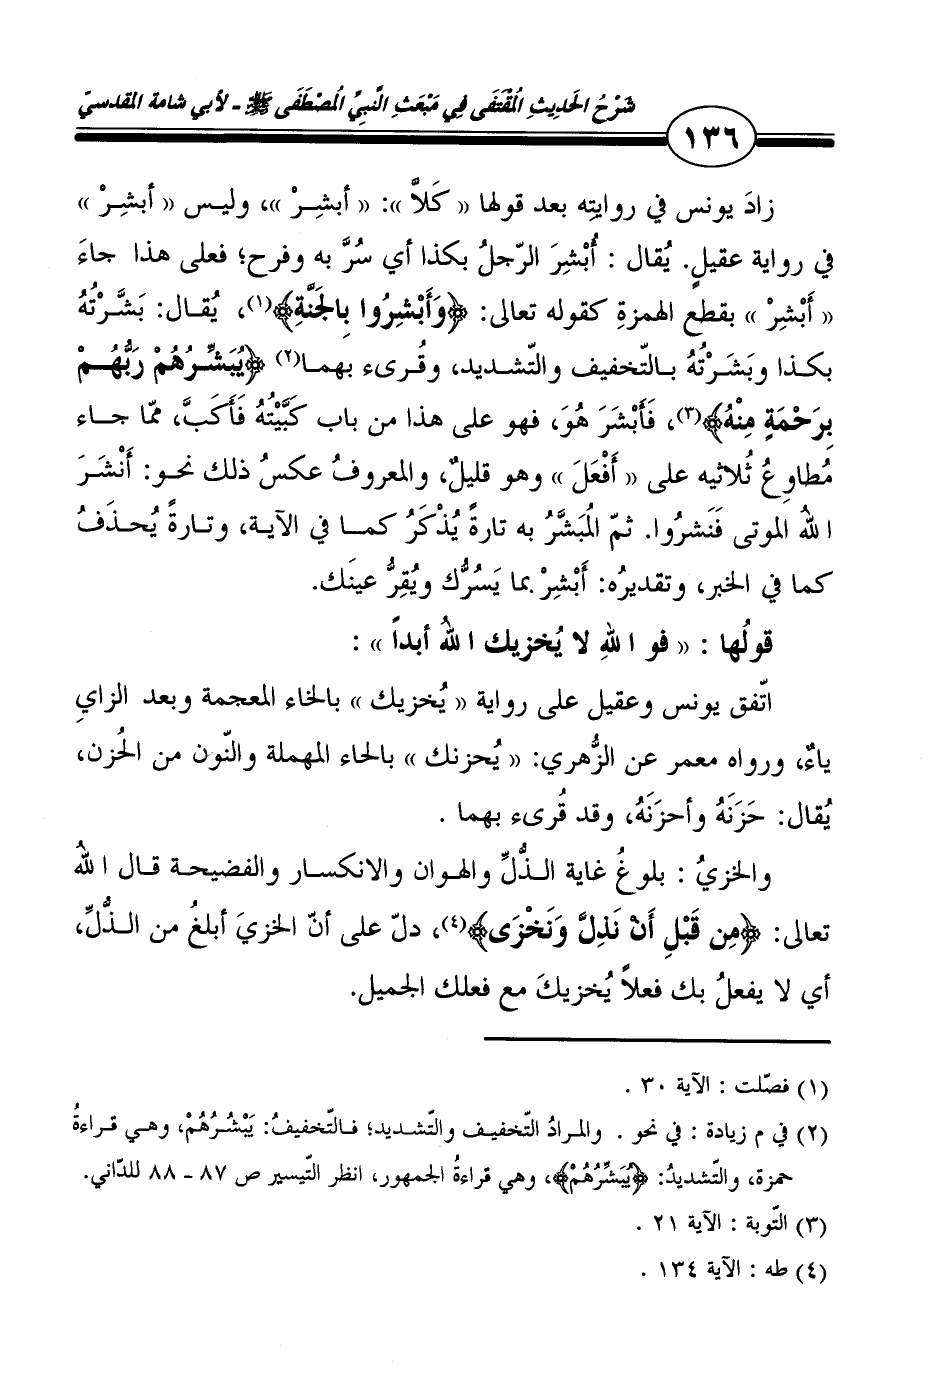 شَرْحُ الحَدِيثِ المُقْتَفَى فِي مَبْعَثِ النَّبِيِّ المُصْطَفَى ﷺ - لأبي شامة المقدسيّ
١٣٦
زادَ يونس في روايتِه بعد قولها « كَلاَّ »: « أبشِرْ »، وليس « أبشِرْ »
في رواية عقيلٍ. يُقال : أُبْشِرَ الرّجلُ بكذا أي سُرَّ به وفرح؛ فعلى هذا جاءَ
« أَبْشِر » بقطع الهمزةِ كقوله تعالى: ﴿وَأَبْشِرُوا بِالجَنَّةِ﴾(١)، يُقـال: بَشَّـرْتُهُ
بكذا وبَشَـرْتُهُ بـالتّخفيف والتّشـديد، وقُـرىء بهمـا(٢) ﴿يُبَشِّرُهُمْ رَبُّهُـمْ
بِرَحْمَةٍ مِنْهُ﴾(٣)، فَأَبْشَرَ هُوَ، فهو على هذا من باب كَبَّيْتُهُ فَأَكَبَّ، ممّا جـاء
مُطاوِعُ ثُلاثيه على « أَفْعَلَ » وهو قليلٌ، والمعروفُ عكسُ ذلك نحو: أَنْشَرَ
اللهُ الموتى فَنَشروا. ثمّ المُبَشَّرُ به تارةً يُذْكَرُ كمـا في الآية، وتـارةً يُحـذَفُ
كما في الخبر، وتقديرُه: أَبْشِرْ بما يَسُرُّك ويُقِرُّ عينَك.
قولُها : « فو اللهِ لا يُخزيك اللهُ أبداً » :
اتّفق يونس وعقيل على رواية « يُخزيك » بالخاء المعجمة وبعد الزايِ
ياءٌ، ورواه معمر عن الزُّهري: « يُحزنك » بالحاء المهملة والنّون من الحُزن،
يُقال: حَزَنَهُ وأحزَنَهُ، وقد قُرىء بهما .
والخزيُ : بلوغُ غاية الـذُّلِّ والهـوان والانكسـار والفضيحـة قـال اللهُ
تعالى: ﴿مِن قَبْلِ أَنْ نَذِلَّ وَنَخْزَى﴾(٤)، دلّ على أنّ الخزيَ أبلغُ من الـذُّلِّ،
أي لا يفعلُ بك فعلاً يُخزيكَ مع فعلك الجميل.
(١) فصّلت : الآية ٣٠ .
(٢) في م زيادة : في نحو . والمرادُ التّخفيـف والتّشـديد؛ فـالتّخفيفُ: يَبْشُـرُهُمْ، وهـي قـراءةُ
حمزة، والتّشديدُ: ﴿يُبَشِّرُهُمْ﴾، وهي قراءةُ الجمهور، انظر التّيسير ص ٨٧ - ٨٨ للدّاني.
(٣) التّوبة : الآية ٢١ .
(٤) طه : الآية ١٣٤ .